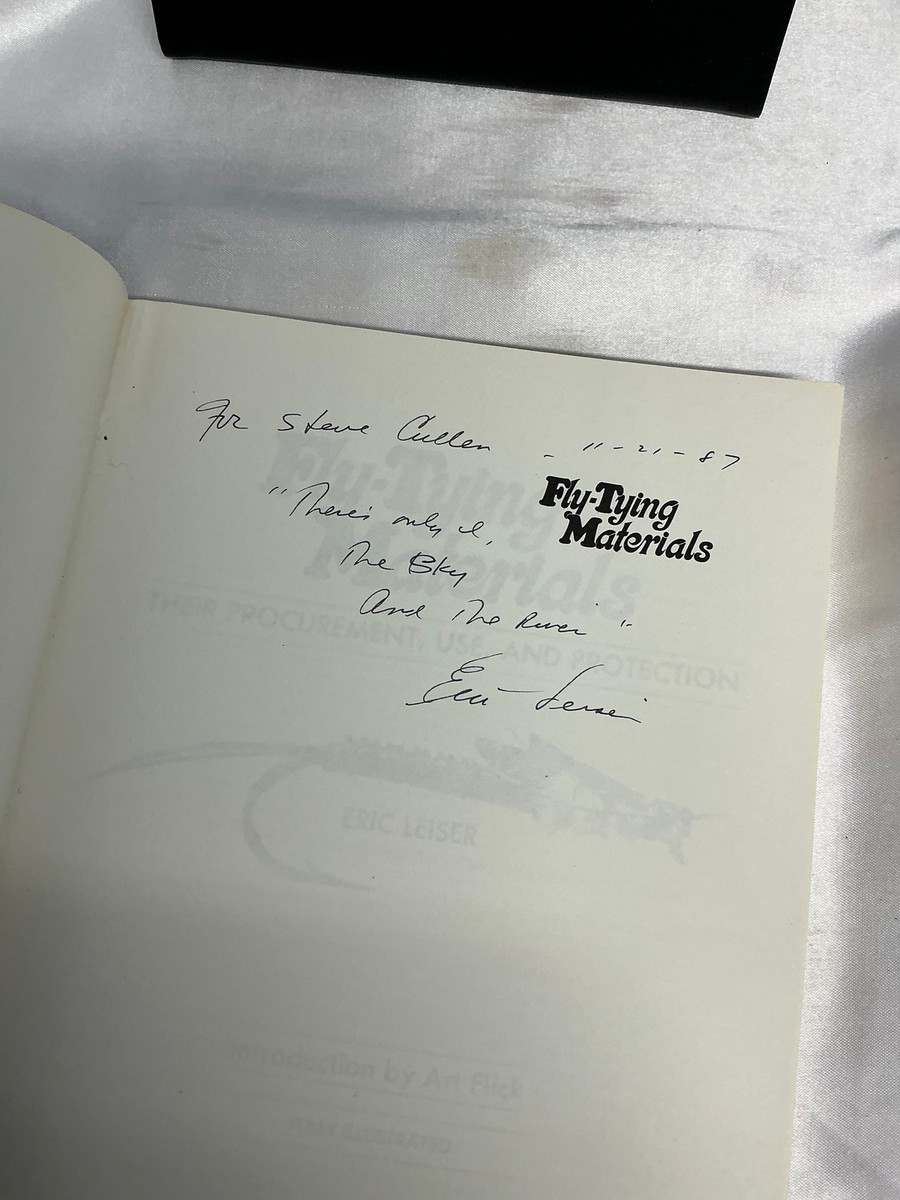 For Steve Cullen - 11-21-87
Fly-Tying
Materials
"There's only I,
The Sky
And The River"
Eric Leiser
Fly-Tying
Materials
THEIR PROCUREMENT, USE, AND PROTECTION
ERIC LEISER
Introduction by Art Flick
FULLY ILLUSTRATED